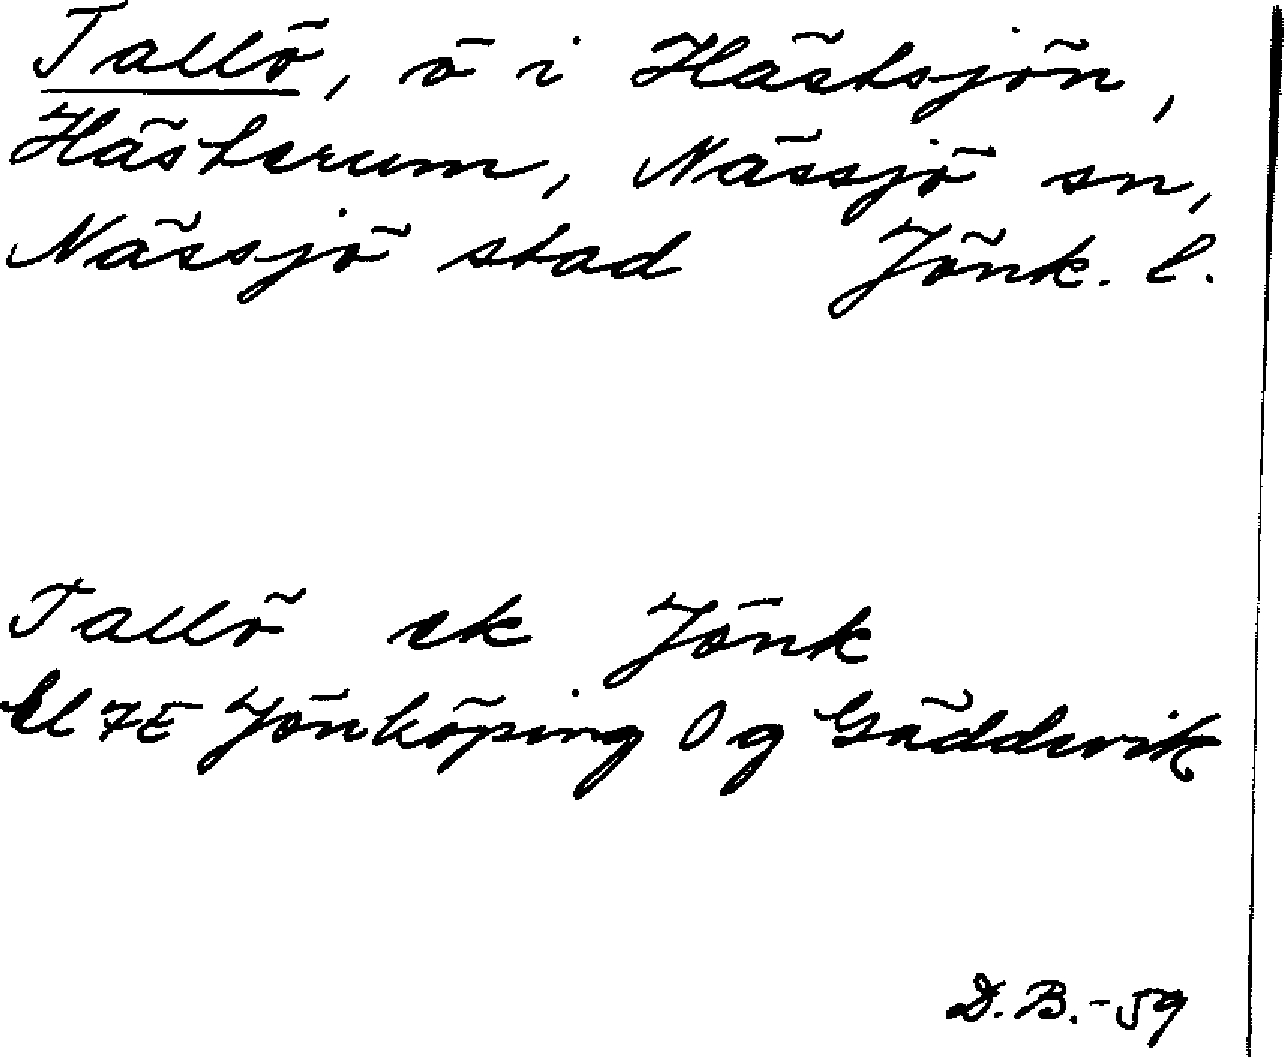 Tallö, ö i Hästsjön,
Hästerum, Nässjö sn,
Nässjö stad Jönk. l.
Tallö ek Jönk
El 7E Jönköping Og Gäddevik
D.B.-59